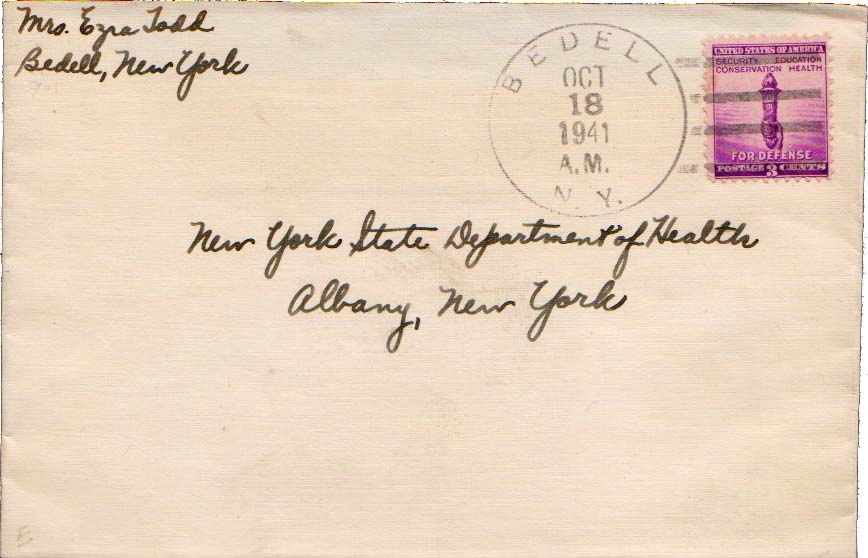 Mrs. Ezra Todd
Bedell, New York
BEDELL
OCT
18
1941
A.M.
N. Y.
UNITED STATES OF AMERICA
SECURITY EDUCATION
CONSERVATION HEALTH
FOR DEFENSE
POSTAGE 3 CENTS
New York State Department of Health
Albany, New York